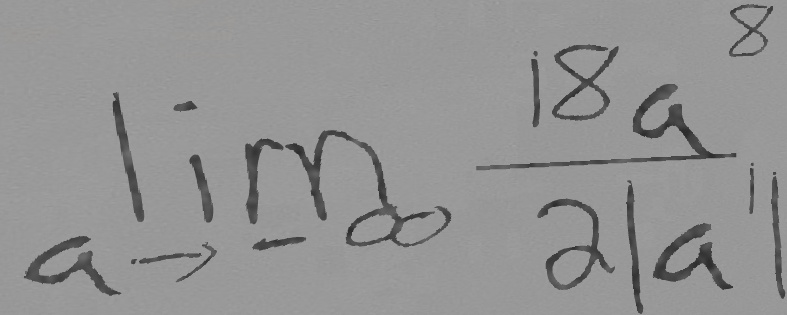 \lim_{a \to -\infty} \frac{18a^8}{2|a^1|}